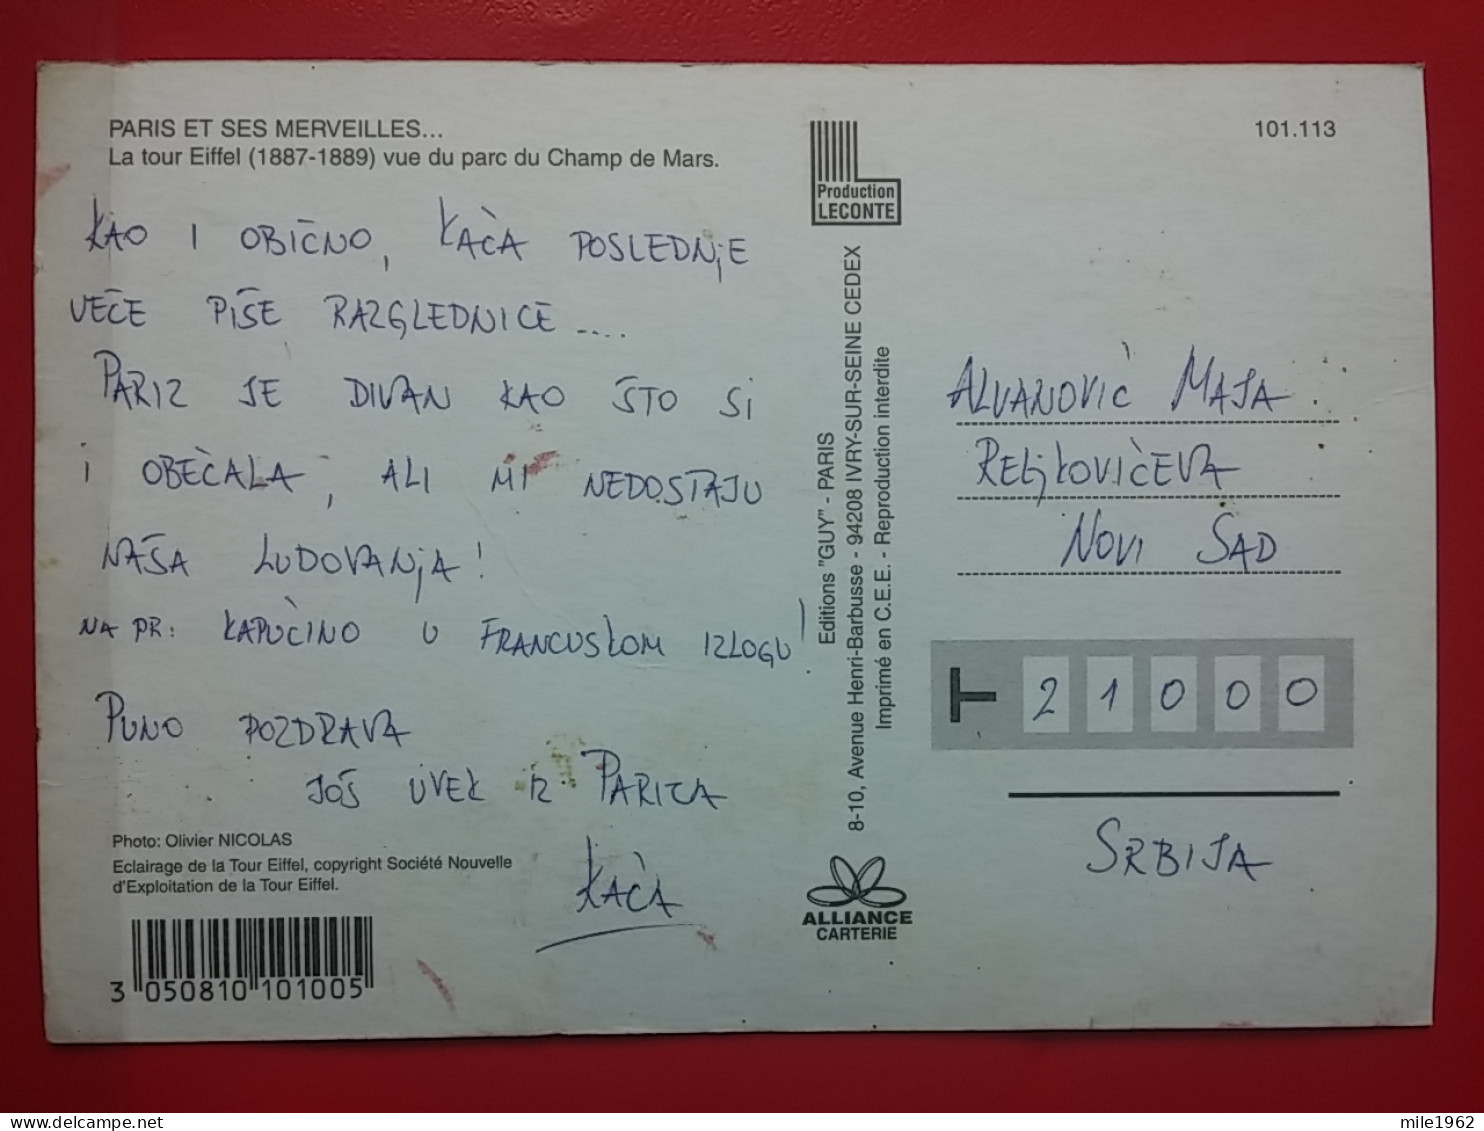 PARIS ET SES MERVEILLES...
La tour Eiffel (1887-1889) vue du parc du Champ de Mars.
KAO I OBIČNO, KAĆA POSLEDNjE
VEČE PIŠE RAZGLEDNICE ....
PARIZ JE DIVAN KAO ŠTO SI
I OBEĆALA, ALI MI NEDOSTAJU
NAŠA LUDOVANjA!
NA PR: KAPUĆINO U FRANCUSKOM IZLOGU!
PUNO POZDRAVA
JOŠ UVEK IZ PARIZA
KAĆA
Photo: Olivier NICOLAS
Eclairage de la Tour Eiffel, copyright Société Nouvelle
d'Exploitation de la Tour Eiffel.
3 050810 101005
Production
LECONTE
Editions "GUY" - PARIS
8-10, Avenue Henri-Barbusse - 94208 IVRY-SUR-SEINE CEDEX
Imprimé en C.E.E. - Reproduction interdite
ALLIANCE
CARTERIE
101.113
ALVANOVIĆ MAJA
RELjKOVIĆEVA
NOVI SAD
21000
SRBIJA
mile1962